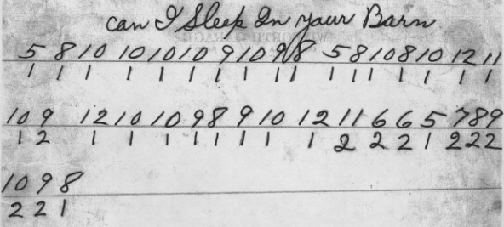 can I Sleep In your Barn
5 8 10 10 10 10 9 10 9 8 5 8 10 8 10 12 11
1 1 1 1 1 1 1 1 1 1 1 1 1 1 1 1 1
10 9 12 10 10 9 8 9 10 12 11 6 6 5 7 8 9
1 2 1 1 1 1 1 1 1 1 2 2 2 1 2 2 2
10 9 8
2 2 1